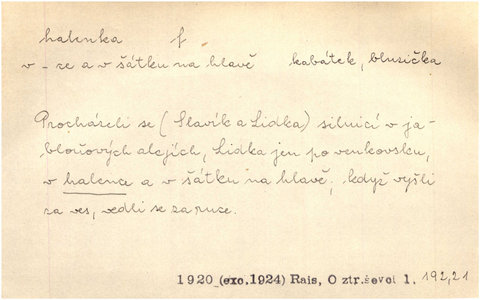 halenka f
v -ze a v šátku na hlavě kabátek, blusička
Procházeli se (Slavík a Lidka) silnicí v ja-
bloňových alejích, Lidka jen po venkovsku,
v halence a v šátku na hlavě, když vyšli
za ves, vedli se za ruce.
1920 (exc.1924) Rais, O ztr.ševci 1. 192,21